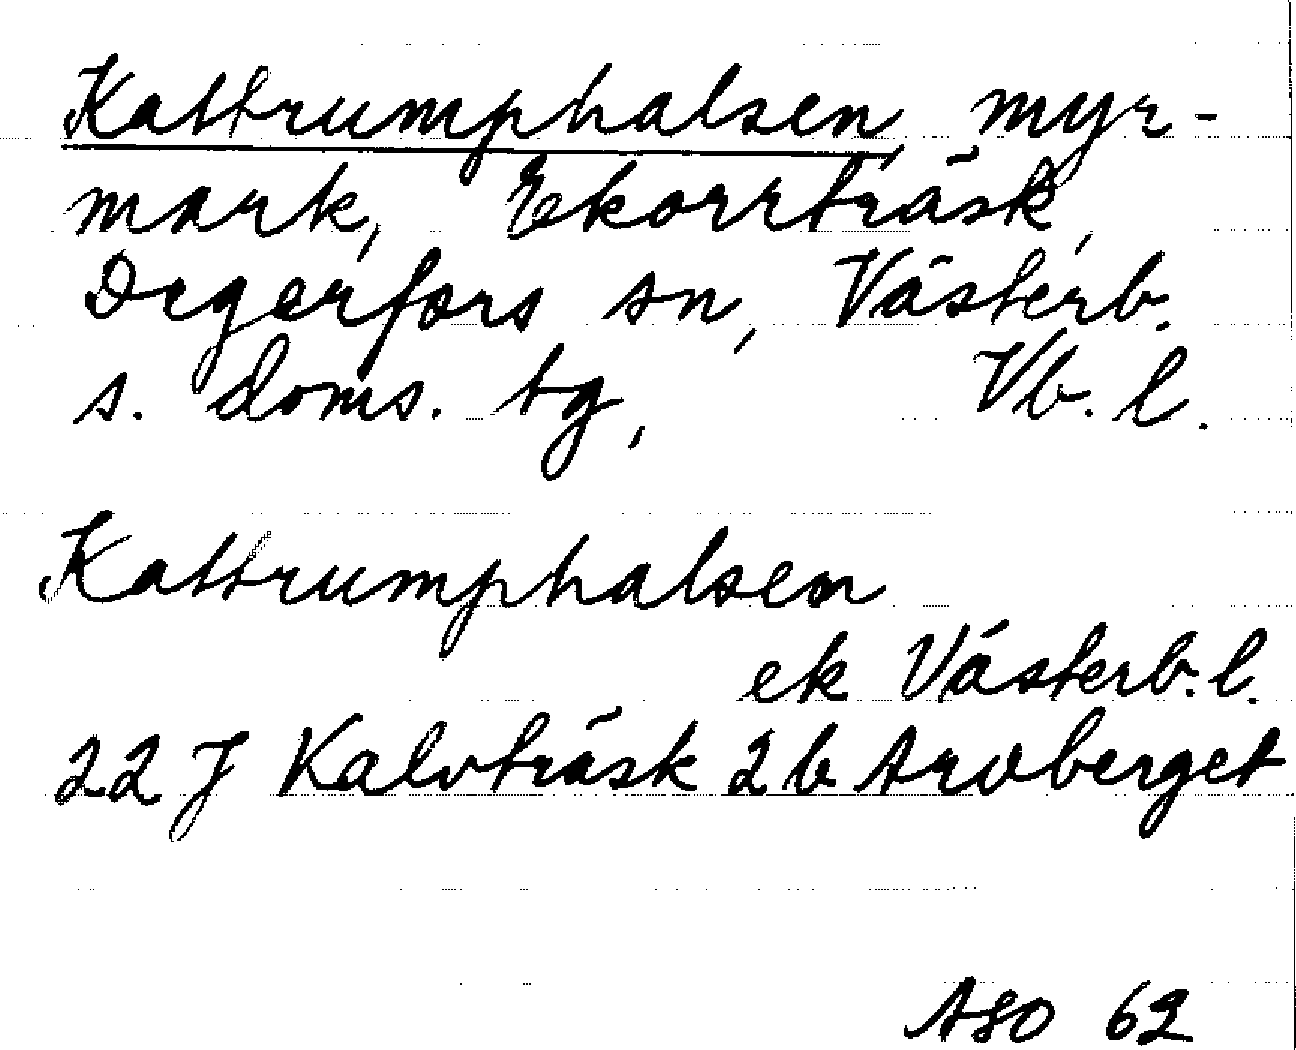 Kattrumphalsen, myr-
mark, Ekorrträsk,
Degerfors sn, Västerb.
s. doms. tg, Vb. l.
Kattrumphalsen
ek Västerb. l.
22 J Kalvträsk 2 b Arvberget
ASO 62